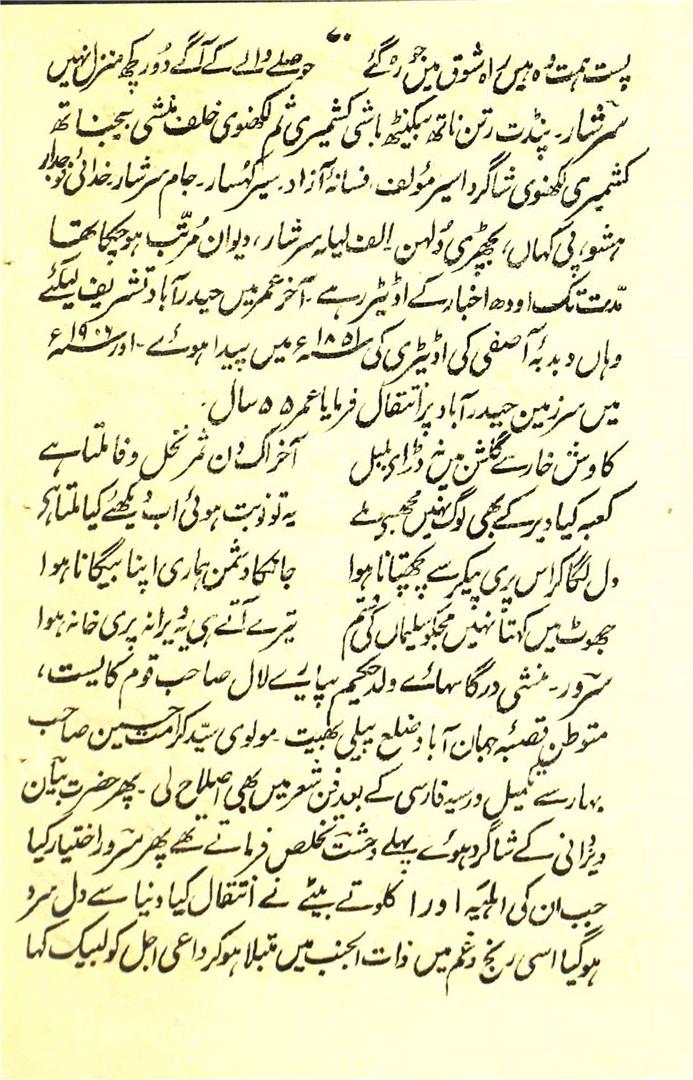 ۷۰
پست ہمت وہ ہیں راہ شوق میں جو رہ گئے حوصلے والے کے آگے دور کچھ منزل نہیں
سرشار۔ پنڈت رتن ناتھ بیکنٹھ باشی کشمیری ثم لکھنوی خلف منشی بیجناتھ
کشمیری لکھنوی شاگرد اسیر مؤلف فسانۂ آزاد۔ سیر کہسار۔ جام سرشار۔ خدائی فوجدار
ہشو، پی کہاں، بچھڑی دُلہن۔ الف لیلہ سرشار، دیوان مُرتّب ہو چکا تھا
مدّت تک اودھ اخبار کے اڈیٹر رہے۔ آخر عمر میں حیدرآباد تشریف لیگئے
وہاں دبدبۂ آصفی کی اڈیٹری کی ۱۸۵۱ء میں پیدا ہوئے۔ اور ۱۹۰۶ء
میں سرزمین حیدرآباد پر انتقال فرمایا عمر ۵۵ سال۔
کاوش خار سے گلشن میں نہ ڈر اے بلبل آخر اک دن ثمر نخل وفا ملتا ہے
کعبہ کیا دیر کے بھی لوگ نہیں مجھسے ملے یہ تو نوبت ہوئی اب دیکھئے کیا ملتا ہی
دل لگا کر اس پری پیکر سے پچھتانا ہوا جانکا دشمن ہماری اپنا بیگانا ہوا
جھوٹ میں کہتا نہیں مجکو سلیماں کی قسم تیرے آتے ہی یہ ویرانہ پری خانہ ہوا
سرور۔ منشی درگا سہائے ولد حکیم پیارے لال صاحب قوم کایست،
متوطن قصبۂ جہان آباد ضلع پیلی بھیت۔ مولوی سیّد کرامت حسین صاحب
بہار سے تکمیل درسیہ فارسی کے بعد فن شعر میں بھی اصلاح لی۔ پھر حضرت بیان
ویزدانی کے شاگرد ہوئے پہلے وحشت تخلص فرماتے تھے پھر سرور اختیار کیا
جب ان کی اہلیہ اور اکلوتے بیٹے نے انتقال کیا دنیا سے دل سرد
ہو گیا اسی رنج و غم میں ذات الجنب میں مبتلا ہو کر داعی اجل کو لبیک کہا